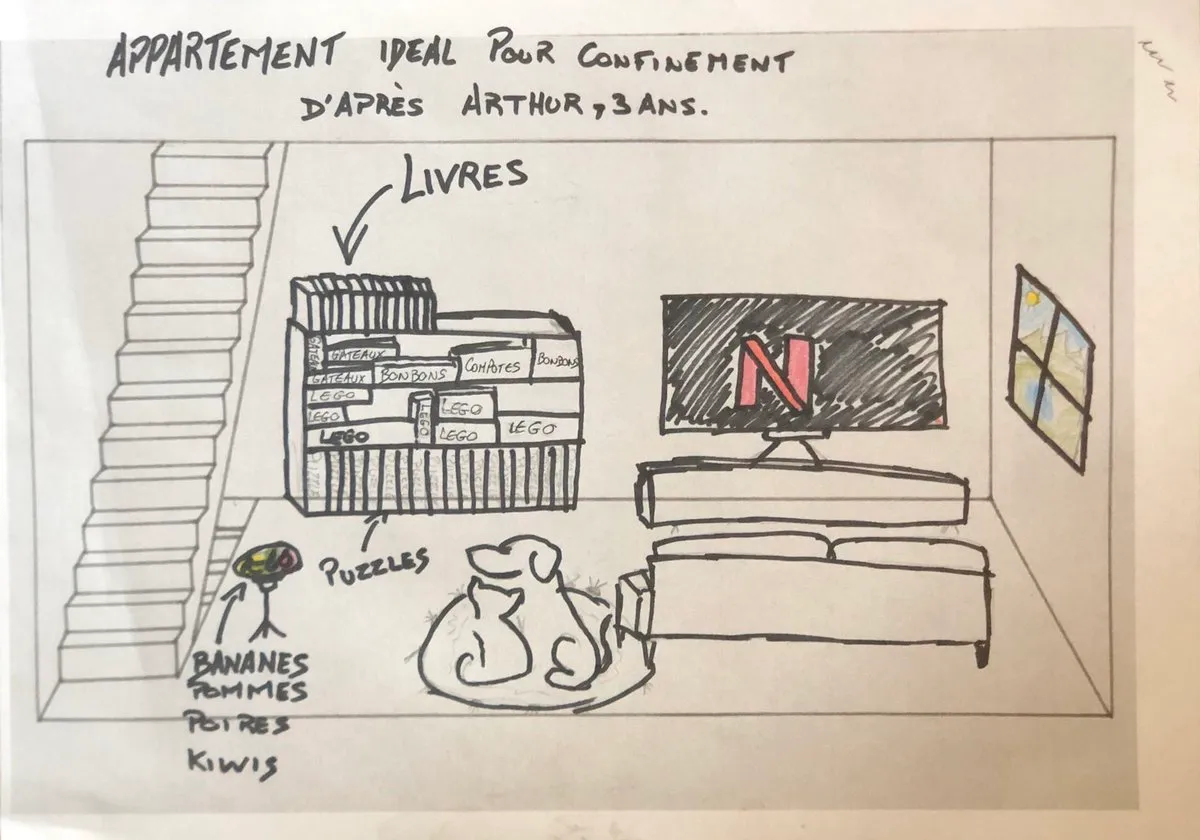 APPARTEMENT IDEAL POUR CONFINEMENT
D'APRÈS ARTHUR, 3 ANS.
LIVRES
GATEAUX
GATEAUX
COMPOTES
BONBONS
GATEAUX
BONBONS
LEGO
LEGO
LEGO
LEGO
LEGO
LEGO
LEGO
PUZZLE
N
PUZZLES
BANANES
POMMES
POIRES
KIWIS